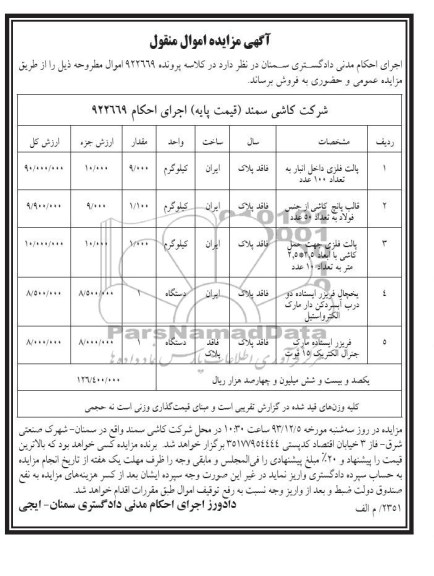 آگهی مزایده اموال منقول
اجرای احکام مدنی دادگستری سمنان در نظر دارد در کلاسه پرونده ۹۲۲۶۶۹ اموال مطروحه ذیل را از طریق
مزایده عمومی و حضوری به فروش برساند.
شرکت کاشی سمند (قیمت پایه) اجرای احکام ۹۲۲۶۶۹
ردیف مشخصات سال ساخت واحد مقدار ارزش جزء ارزش کل
۱ پالت فلزی داخل انبار به تعداد ۱۰۰ عدد فاقد پلاک ایران کیلوگرم ۹/۰۰۰ ۱۰/۰۰۰ ۹۰/۰۰۰/۰۰۰
۲ قالب پانچ کاشی از جنس فولاد به تعداد ۵۰ عدد فاقد پلاک ایران کیلوگرم ۱/۱۰۰ ۹/۰۰۰ ۹/۹۰۰/۰۰۰
۳ پالت فلزی جهت حمل کاشی با ابعاد ۲,۵*۲,۵ متر به تعداد ۱۰ عدد فاقد پلاک ایران کیلوگرم ۱/۰۰۰ ۱۰/۰۰۰ ۱۰/۰۰۰/۰۰۰
۴ یخچال فریزر ایستاده دو درب آبسردکن دار مارک الکترواستیل فاقد پلاک ایران دستگاه ۱ ۸/۵۰۰/۰۰۰ ۸/۵۰۰/۰۰۰
۵ فریزر ایستاده مارک جنرال الکتریک ۱۵ فوت فاقد پلاک فاقد پلاک دستگاه ۱ ۸/۰۰۰/۰۰۰ ۸/۰۰۰/۰۰۰
یکصد و بیست و شش میلیون و چهارصد هزار ریال ۱۲۶/۴۰۰/۰۰۰
کلیه وزن‌های قید شده در گزارش تقریبی است و مبنای قیمت‌گذاری وزنی است نه حجمی
ParsNamadData
مزایده در روز سه‌شنبه مورخه ۹۳/۱۲/۵ ساعت ۱۰:۳۰ در محل شرکت کاشی سمند واقع در سمنان- شهرک صنعتی
شرق- فاز ۳ خیابان اقتصاد کدپستی ۳۵۱۷۷۹۵۴۴۴ برگزار خواهد شد. برنده مزایده کسی خواهد بود که بالاترین
قیمت را پیشنهاد و ۲۰٪ مبلغ پیشنهادی را فی‌المجلس و مابقی وجه را ظرف مهلت یک هفته از تاریخ انجام مزایده
به حساب سپرده دادگستری واریز نماید در غیر این صورت وجه سپرده ایشان بعد از کسر هزینه‌های مزایده به نفع
صندوق دولت ضبط و بعد از واریز وجه نسبت به رفع توقیف اموال طبق مقررات اقدام خواهد شد.
۲۳۵۱/ م الف دادورز اجرای احکام مدنی دادگستری سمنان- ایجی